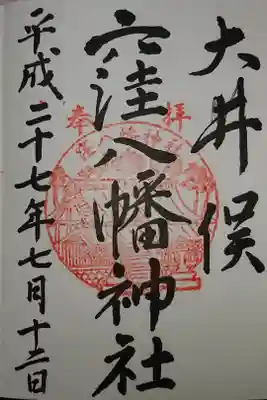 大井俣
奉拝
窪八幡神社
平成二十七年七月十二日